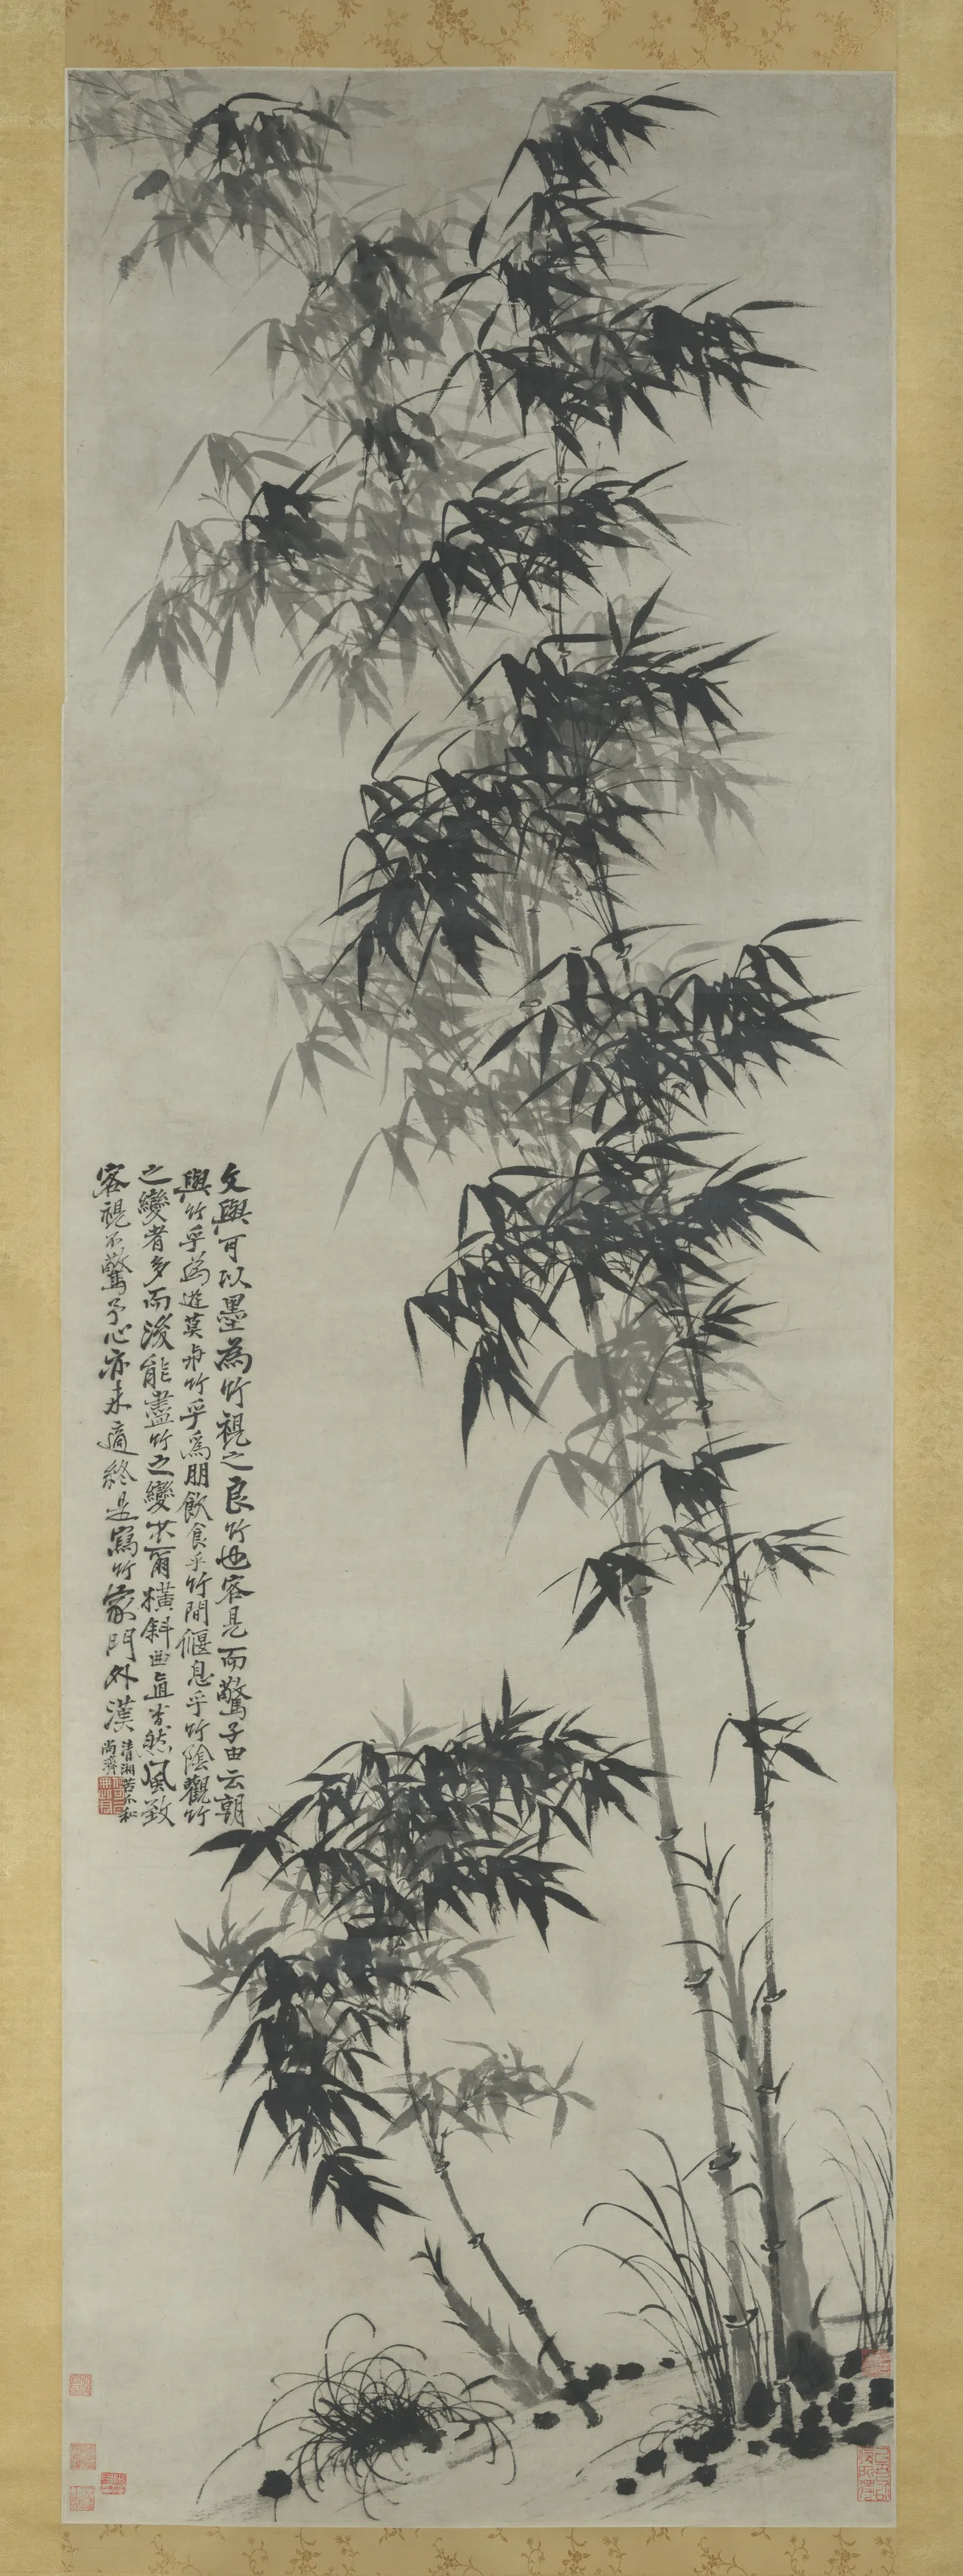 文與可以墨為竹視之良竹也客見而驚子由云朝
與竹乎為遊莫與竹乎為朋飲食乎竹間偃息乎竹陰觀竹
之變者多而後能盡竹之變若爾橫斜曲直杳然風致
客視不驚予心亦未適終是寫竹家門外漢
清湘苦瓜和
尚濟